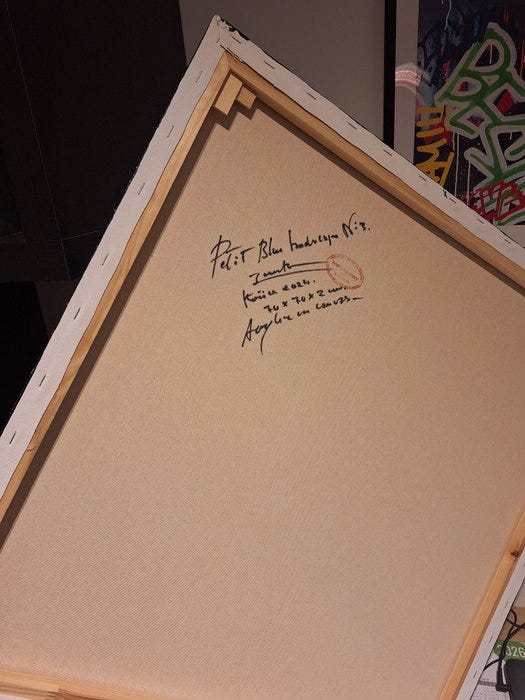 Petit Blue landscape N:3.
Košice 2024.
70 x 70 x 2 cm.
Acrylic on canvas
2026